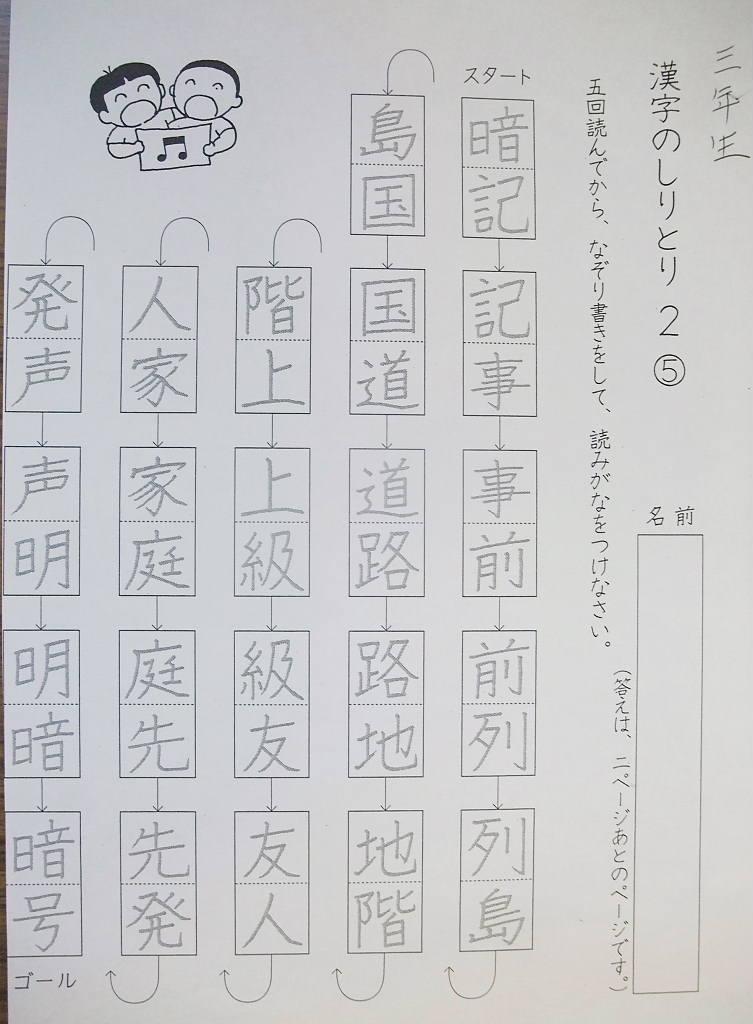 三年生
漢字のしりとり 2 ⑤
名前
五回読んでから、なぞり書きをして、読みがなをつけなさい。
(答えは、二ページあとのページです。)
スタート
暗記
記事
事前
前列
列島
島国
国道
道路
路地
地階
階上
上級
級友
友人
人家
家庭
庭先
先発
発声
声明
明暗
暗号
ゴール